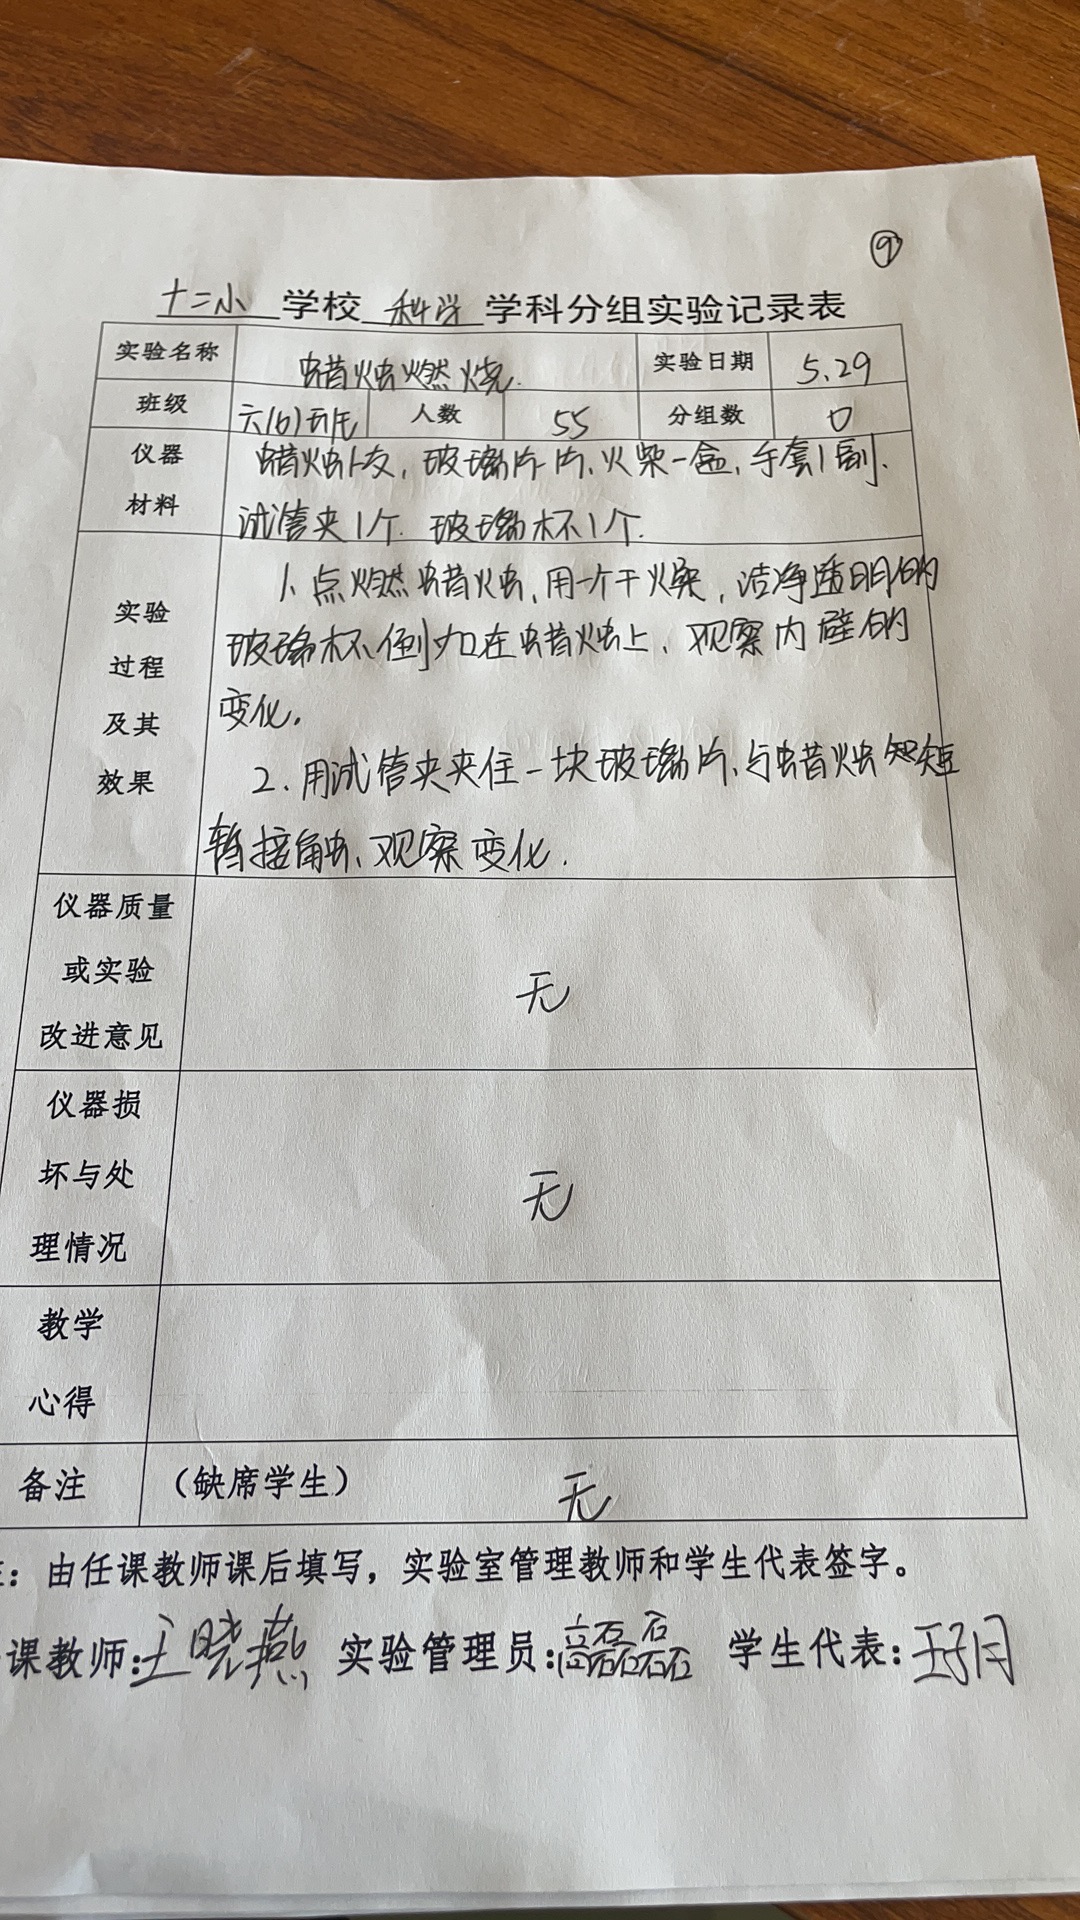 ⑨
十二小 学校 科学 学科分组实验记录表
实验名称 蜡烛燃烧. 实验日期 5.29
班级 六(6)班 人数 55 分组数 0
仪器 蜡烛1支, 玻璃片1片, 火柴一盒, 手套1副.
材料 试管夹1个. 玻璃杯1个.
实验 1. 点燃蜡烛, 用一个干燥, 洁净透明的
过程 玻璃杯倒扣在蜡烛上, 观察内壁的
及其 变化.
效果 2. 用试管夹夹住一块玻璃片, 与蜡烛短
暂接触, 观察变化.
仪器质量
或实验 无
改进意见
仪器损
坏与处 无
理情况
教学
心得
备注 （缺席学生） 无
：由任课教师课后填写，实验室管理教师和学生代表签字。
课教师:王晓燕 实验管理员:高磊磊 学生代表: